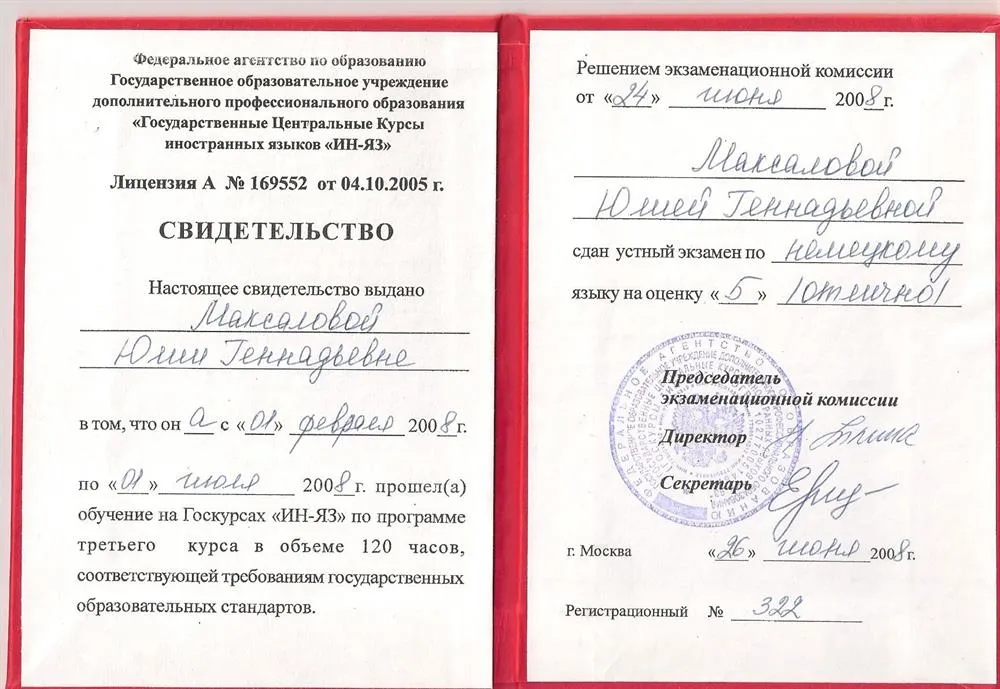 Федеральное агентство по образованию
Государственное образовательное учреждение
дополнительного профессионального образования
«Государственные Центральные Курсы
иностранных языков «ИН-ЯЗ»
Лицензия А № 169552 от 04.10.2005 г.
СВИДЕТЕЛЬСТВО
Настоящее свидетельство выдано
Максаловой
Юлии Геннадьевне
в том, что он а с «01» февраля 2008г.
по «01» июля 2008 г. прошел(а)
обучение на Госкурсах «ИН-ЯЗ» по программе
третьего курса в объеме 120 часов,
соответствующей требованиям государственных
образовательных стандартов.
Решением экзаменационной комиссии
от «24» июня 2008г.
Максаловой
Юлией Геннадьевной
сдан устный экзамен по немецкому
языку на оценку «5» /отлично/
Председатель
экзаменационной комиссии
Директор
Секретарь
г. Москва «26» июня 2008г.
Регистрационный № 322
ФЕДЕРАЛЬНОЕ АГЕНТСТВО ПО ОБРАЗОВАНИЮ